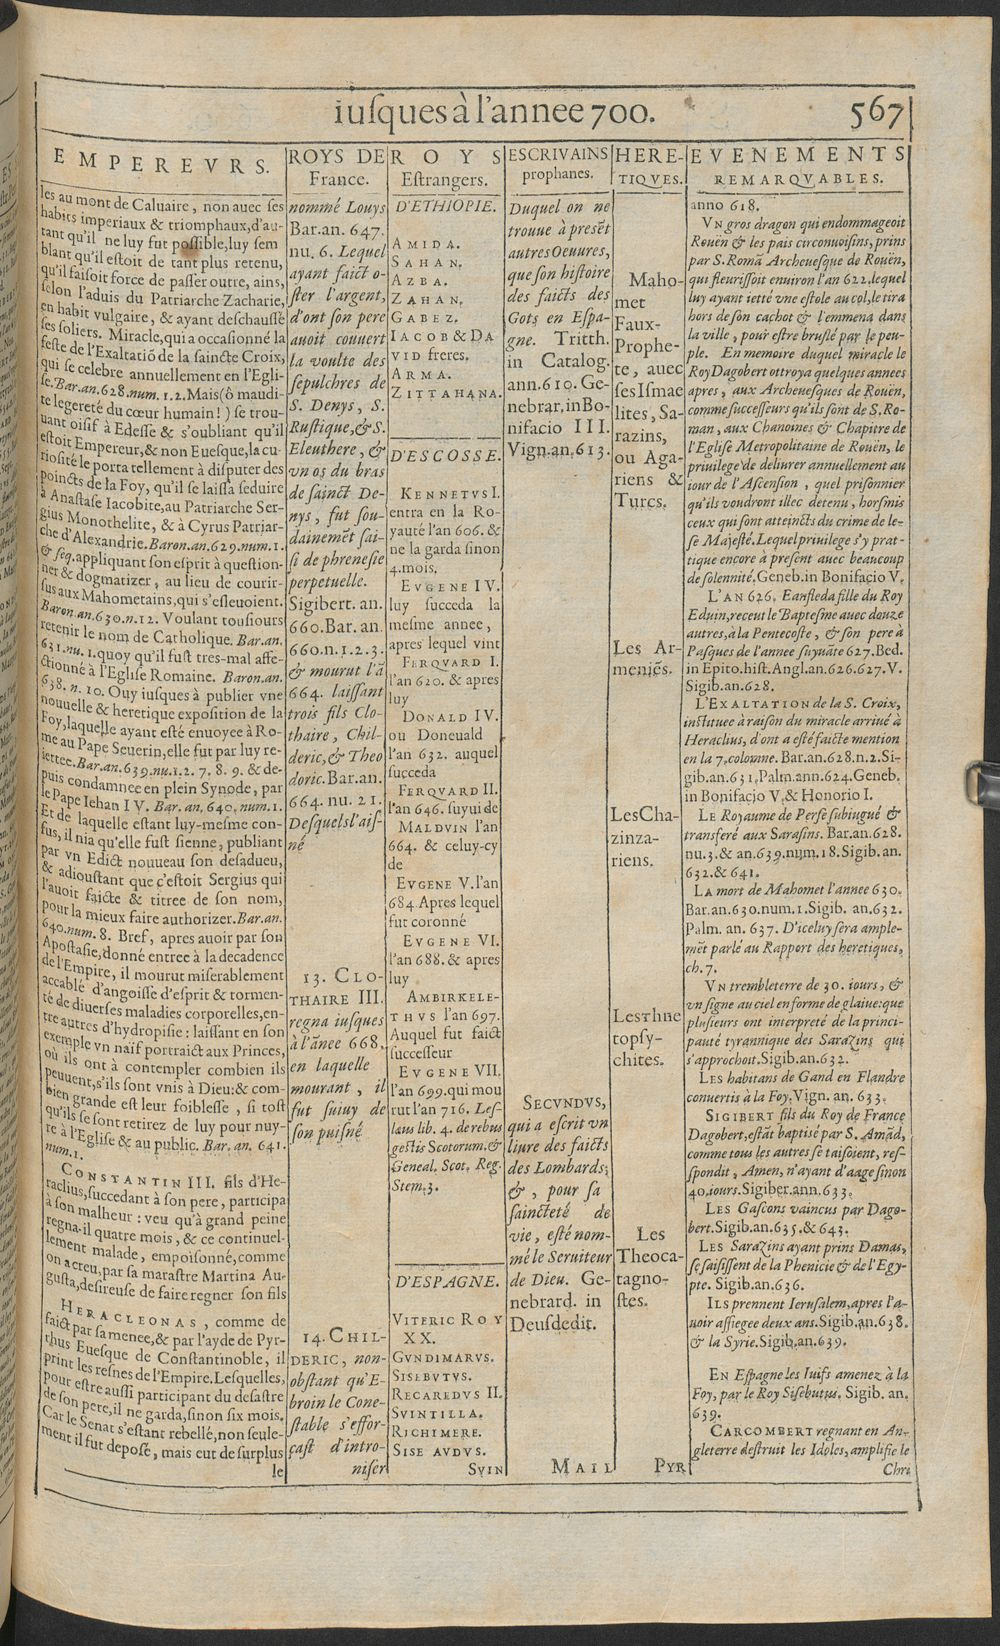 iuſques à l'annee 700. 567
EMPEREVRS.
les au mont de Caluaire, non auec ſes
habits imperiaux & triomphaux, d'au-
tant qu'il ne luy fut poſſible, luy ſem
blant qu'il eſtoit de tant plus retenu,
qu'il faiſoit force de paſſer outre, ains,
ſelon l'aduis du Patriarche Zacharie,
en habit vulgaire, & ayant deſchauſſé
ſes ſoliers. Miracle, qui a occaſionné la
feſte de l'Exaltatiõ de la ſaincte Croix,
qui ſe celebre annuellement en l'Egli-
ſe. Bar. an. 628. num. 1. 2. Mais (ô maudi-
te legereté du cœur humain!) ſe trou-
uant oiſif à Edeſſe & s'oubliant qu'il
eſtoit Empereur, & non Eueſque, la cu-
rioſité le porta tellement à diſputer des
poincts de la Foy, qu'il ſe laiſſa ſeduire
à Anaſtaſe Iacobite, au Patriarche Ser-
gius Monothelite, & à Cyrus Patriar-
che d'Alexandrie. Baron. an. 629. num. 1.
& ſeq. appliquant ſon eſprit à queſtion-
ner & dogmatizer, au lieu de courir-
ſus aux Mahometains, qui s'eſleuoient.
Baron an. 630. n. 12. Voulant touſiours
retenir le nom de Catholique. Bar. an.
631. nu. 1. quoy qu'il fuſt tres-mal affe-
ctionné à l'Egliſe Romaine. Baron. an.
638. n. 10. Ouy iuſques à publier vne
nouuelle & heretique expoſition de la
Foy, laquelle ayant eſté enuoyee à Ro-
me au Pape Seuerin, elle fut par luy re-
iettee. Bar. an. 639. nu. 1. 2. 7. 8. 9. & de-
puis condamnee en plein Synode, par
le Pape Iehan IV. Bar. an. 640. num. 1.
Et de laquelle eſtant luy-meſme con-
fus, il nia qu'elle fuſt ſienne, publiant
par vn Edict nouueau ſon deſadueu,
& adiouſtant que c'eſtoit Sergius qui
l'auoit faicte & titree de ſon nom,
pour la mieux faire authorizer. Bar. an.
640. num. 8. Bref, apres auoir par ſon
Apoſtaſie, donné entree à la decadence
de l'Empire, il mourut miſerablement
accablé d'angoiſſe d'eſprit & tormen-
té de diuerſes maladies corporelles, en-
tre autres d'hydropiſie: laiſſant en ſon
exemple vn naïf portraict aux Princes,
où ils ont à contempler combien ils
peuuent, s'ils ſont vnis à Dieu: & com-
bien grande eſt leur foibleſſe, ſi toſt
qu'ils ſe ſont retirez de luy pour nuy-
re à l'Egliſe & au public. Bar. an. 641.
num. 1.
CONSTANTIN III. fils d'He-
raclius, ſuccedant à ſon pere, participa
à ſon malheur: veu qu'à grand peine
regna-il quatre mois, & ce continuel-
lement malade, empoiſonné, comme
on a creu, par ſa maraſtre Martina Au-
guſta, deſireuſe de faire regner ſon fils
HERACLEONAS, comme de
faict par ſa menee, & par l'ayde de Pyr-
rhus Eueſque de Conſtantinoble, il
print les reſnes de l'Empire. Leſquelles,
pour eſtre auſſi participant du deſaſtre
de ſon pere, il ne garda, ſinon ſix mois.
Car le Senat s'eſtant rebellé, non ſeule-
ment il fut depoſé, mais eut de ſurplus
le
ROYS DE
France.
nommé Louys
Bar. an. 647.
nu. 6. Lequel
ayant faict o-
ſter l'argent,
d'ont ſon pere
auoit couuert
la voulte des
ſepulchres de
S. Denys, S.
Ruſtique, & S.
Eleuthere, &
vn os du bras
de ſainct De-
nys, fut ſou-
dainemẽt ſai-
ſi de phreneſie
perpetuelle.
Sigibert. an.
660. Bar. an.
660. n. 1. 2. 3.
& mourut l'ã
664. laiſſant
trois fils Clo-
thaire, Chil-
deric, & Theo
doric. Bar. an.
664. nu. 21.
Deſquels l'aiſ-
né
13. CLO-
THAIRE III.
regna iuſques
à l'ãnee 668.
en laquelle
mourant, il
fut ſuiuy de
ſon puiſné
14. CHIL-
DERIC, non-
obſtant qu'E-
broin le Cone-
ſtable s'effor-
çaſt d'intro-
niſer
ROYS
Eſtrangers.
D'ETHIOPIE.
AMIDA.
SAHAN.
AZBA.
ZAHAN.
GABEZ.
IACOB & DA
VID freres.
ARMA.
ZITTAHANA.
D'ESCOSSE.
KENNETVS I.
entra en la Ro-
yauté l'an 606. &
ne la garda ſinon
4. mois.
EVGENE IV.
luy ſucceda la
meſme annee,
apres lequel vint
FERQVARD I.
l'an 620. & apres
luy
DONALD IV.
ou Doneuald
l'an 632. auquel
ſucceda
FERQVARD II.
l'an 646. ſuyui de
MALDVIN l'an
664. & celuy-cy
de
EVGENE V. l'an
684. Apres lequel
fut coronné
EVGENE VI.
l'an 688. & apres
luy
AMBIRKELE-
THVS l'an 697.
Auquel fut faict
ſucceſſeur
EVGENE VII.
l'an 699. qui mou
rut l'an 716. Leſ-
laus lib. 4. de rebus
geſtis Scotorum. &
Geneal. Scot. Reg.
Stem. 3.
D'ESPAGNE.
VITERIC ROY
XX.
GVNDIMARVS.
SISEBVTVS.
RECAREDVS II.
SVINTILLA.
RICHIMERE.
SISE AVDVS.
SVIN
ESCRIVAINS
prophanes.
Duquel on ne
trouue à preſẽt
autres Oeuures,
que ſon hiſtoire
des faicts des
Gots en Eſpa-
gne. Tritth.
in Catalog.
ann. 610. Ge-
nebrar. in Bo-
nifacio III.
Vign. an. 613.
SECVNDVS,
qui a eſcrit vn
liure des faicts
des Lombards;
&, pour ſa
ſaincteté de
vie, eſté nom-
mé le Seruiteur
de Dieu. Ge-
nebrard. in
Deuſdedit.
MAIL
HERE-
TIQVES.
Maho-
met
Faux-
Prophe-
te, auec
ſes Iſmae
lites, Sa-
razins,
ou Aga-
riens &
Turcs.
Les Ar-
meniẽs.
Les Cha-
zinza-
riens.
Les Thne
topſy-
chites.
Les
Theoca-
tagno-
ſtes.
PYR
EVENEMENTS
REMARQVABLES.
anno 618.
VN gros dragon qui endommageoit
Roüen & les païs circonuoiſins, prins
par S. Romã Archeueſque de Roüen,
qui fleuriſſoit enuiron l'an 622. lequel
luy ayant ietté vne eſtole au col, le tira
hors de ſon cachot & l'emmena dans
la ville, pour eſtre bruſlé par le peu-
ple. En memoire duquel miracle le
Roy Dagobert ottroya quelques annees
apres, aux Archeueſques de Roüen,
comme ſucceſſeurs qu'ils ſont de S. Ro-
man, aux Chanoines & Chapitre de
l'Egliſe Metropolitaine de Roüen, le
priuilege de deliurer annuellement au
iour de l'Aſcenſion, quel priſonnier
qu'ils voudront illec detenu, horſmis
ceux qui ſont atteincts du crime de le-
ſe Majeſté. Lequel priuilege s'y prat-
tique encore à preſent auec beaucoup
de ſolennité. Geneb. in Bonifacio V.
L'AN 626. Eanfleda fille du Roy
Eduin, receut le Bapteſme auec douze
autres, à la Pentecoſte, & ſon pere à
Paſques de l'annee ſuyuãte 627. Bed.
in Epito. hiſt. Angl. an. 626. 627. V.
Sigib. an. 628.
L'EXALTATION de la S. Croix,
inſtituee à raiſon du miracle arriué à
Heraclius, d'ont a eſté faicte mention
en la 7. colonne. Bar. an. 628. n. 2. Si-
gib. an. 631. Palm. ann. 624. Geneb.
in Bonifacio V. & Honorio I.
LE Royaume de Perſe ſubiugué &
transferé aux Saraſins. Bar. an. 628.
nu. 3. & an. 639. num. 18. Sigib. an.
632. & 641.
LA mort de Mahomet l'annee 630.
Bar. an. 630. num. 1. Sigib. an. 632.
Palm. an. 637. D'iceluy ſera ample-
mẽt parlé au Rapport des heretiques,
ch. 7.
VN trembleterre de 30. iours, &
vn ſigne au ciel en forme de glaiue: que
pluſieurs ont interpreté de la princi-
pauté tyrannique des Sarazins qui
s'approchoit. Sigib. an. 632.
LES habitans de Gand en Flandre
conuertis à la Foy. Vign. an. 633.
SIGIBERT fils du Roy de France
Dagobert, eſtãt baptiſé par S. Amãd,
comme tous les autres ſe taiſoient, reſ-
ſpondit, Amen, n'ayant d'aage ſinon
40. iours. Sigiber. ann. 633.
LES Gaſcons vaincus par Dago-
bert. Sigib. an. 635. & 643.
LES Sarazins ayant prins Damas,
ſe ſaiſiſſent de la Phenicie & de l'Egy-
pte. Sigib. an. 636.
ILS prennent Ieruſalem, apres l'a-
uoir aſſiegee deux ans. Sigib. an. 638.
& la Syrie. Sigib. an. 639.
EN Eſpagne les Iuifs amenez à la
Foy, par le Roy Siſebutus. Sigib. an.
639.
CARCOMBERT regnant en An-
gleterre deſtruit les Idoles, amplifie le
Chri